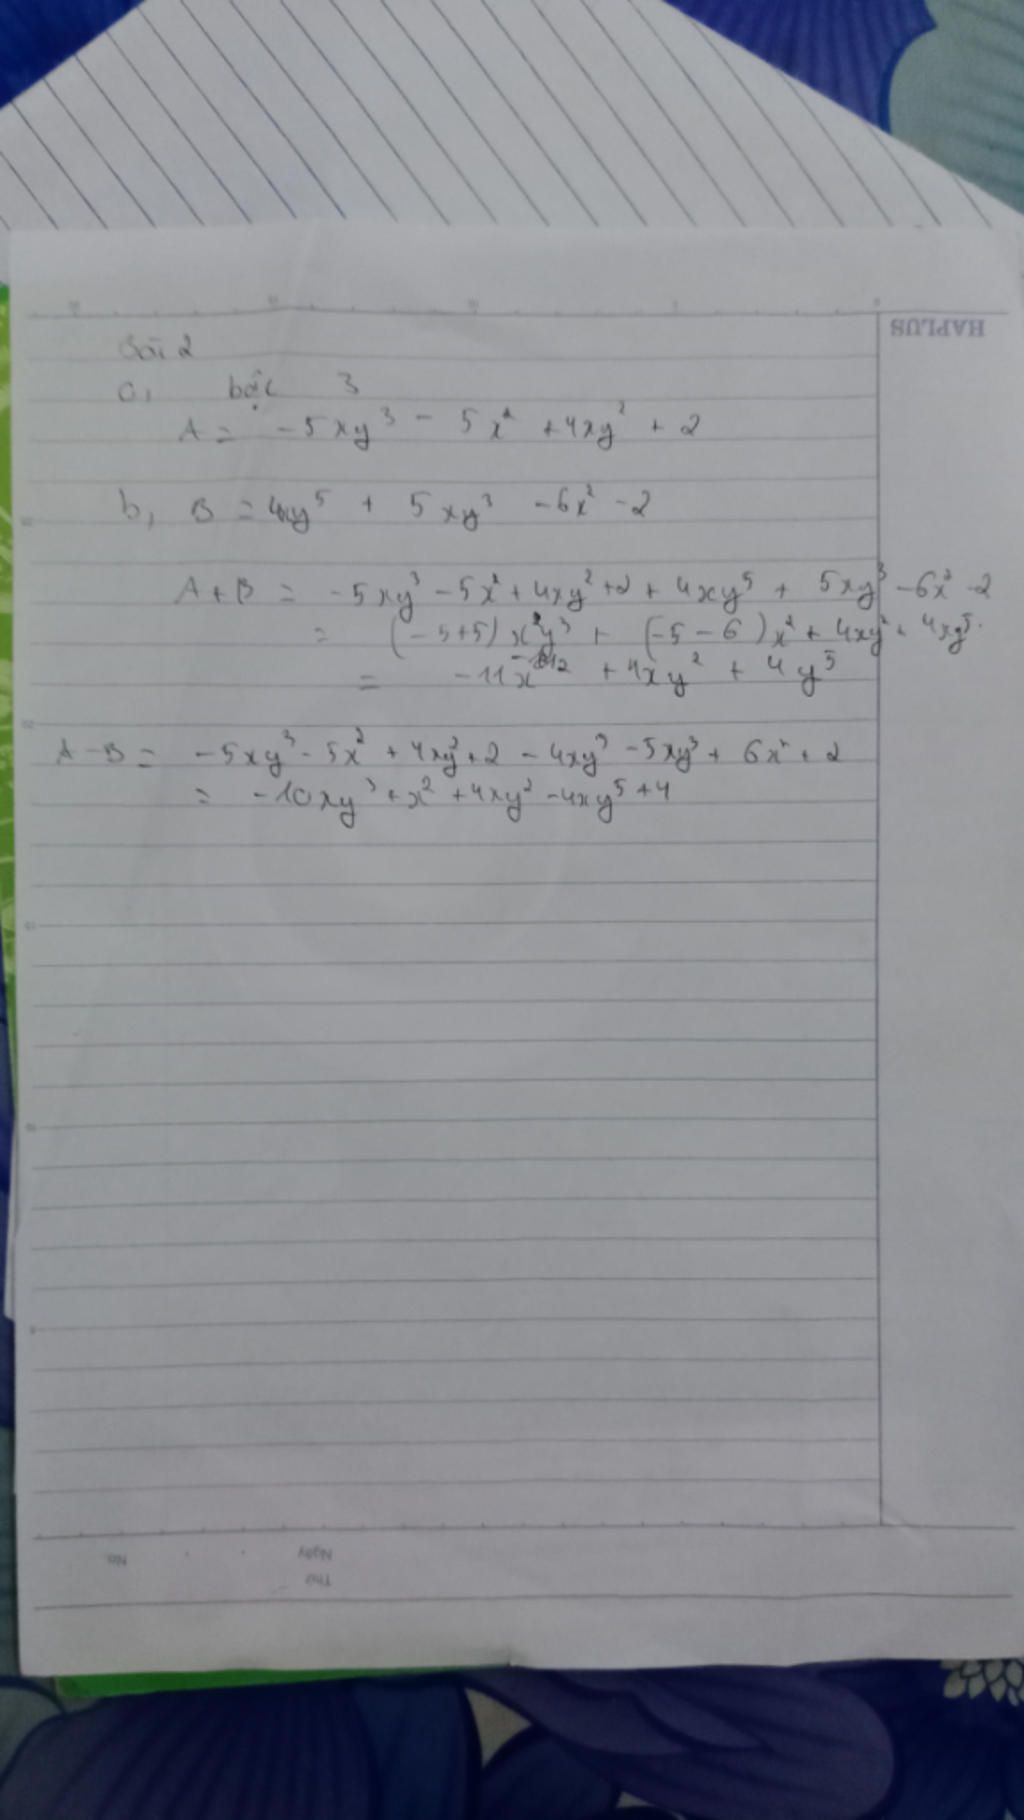 HAPLUS
Bài 2
a, bậc 3
A = -5xy³ - 5x² + 4xy² + 2
b, B = 4xy⁵ + 5xy³ - 6x² - 2
A + B = -5xy³ - 5x² + 4xy² + 2 + 4xy⁵ + 5xy³ - 6x² - 2
= (-5+5) x²y³ + (-5-6) x² + 4xy² + 4xy⁵.
= -11x² + 4xy² + 4y⁵
A - B = -5xy³ - 5x² + 4xy² + 2 - 4xy⁵ - 5xy³ + 6x² + 2
= -10xy³ + x² + 4xy² - 4xy⁵ + 4
No. Ngày
Thứ